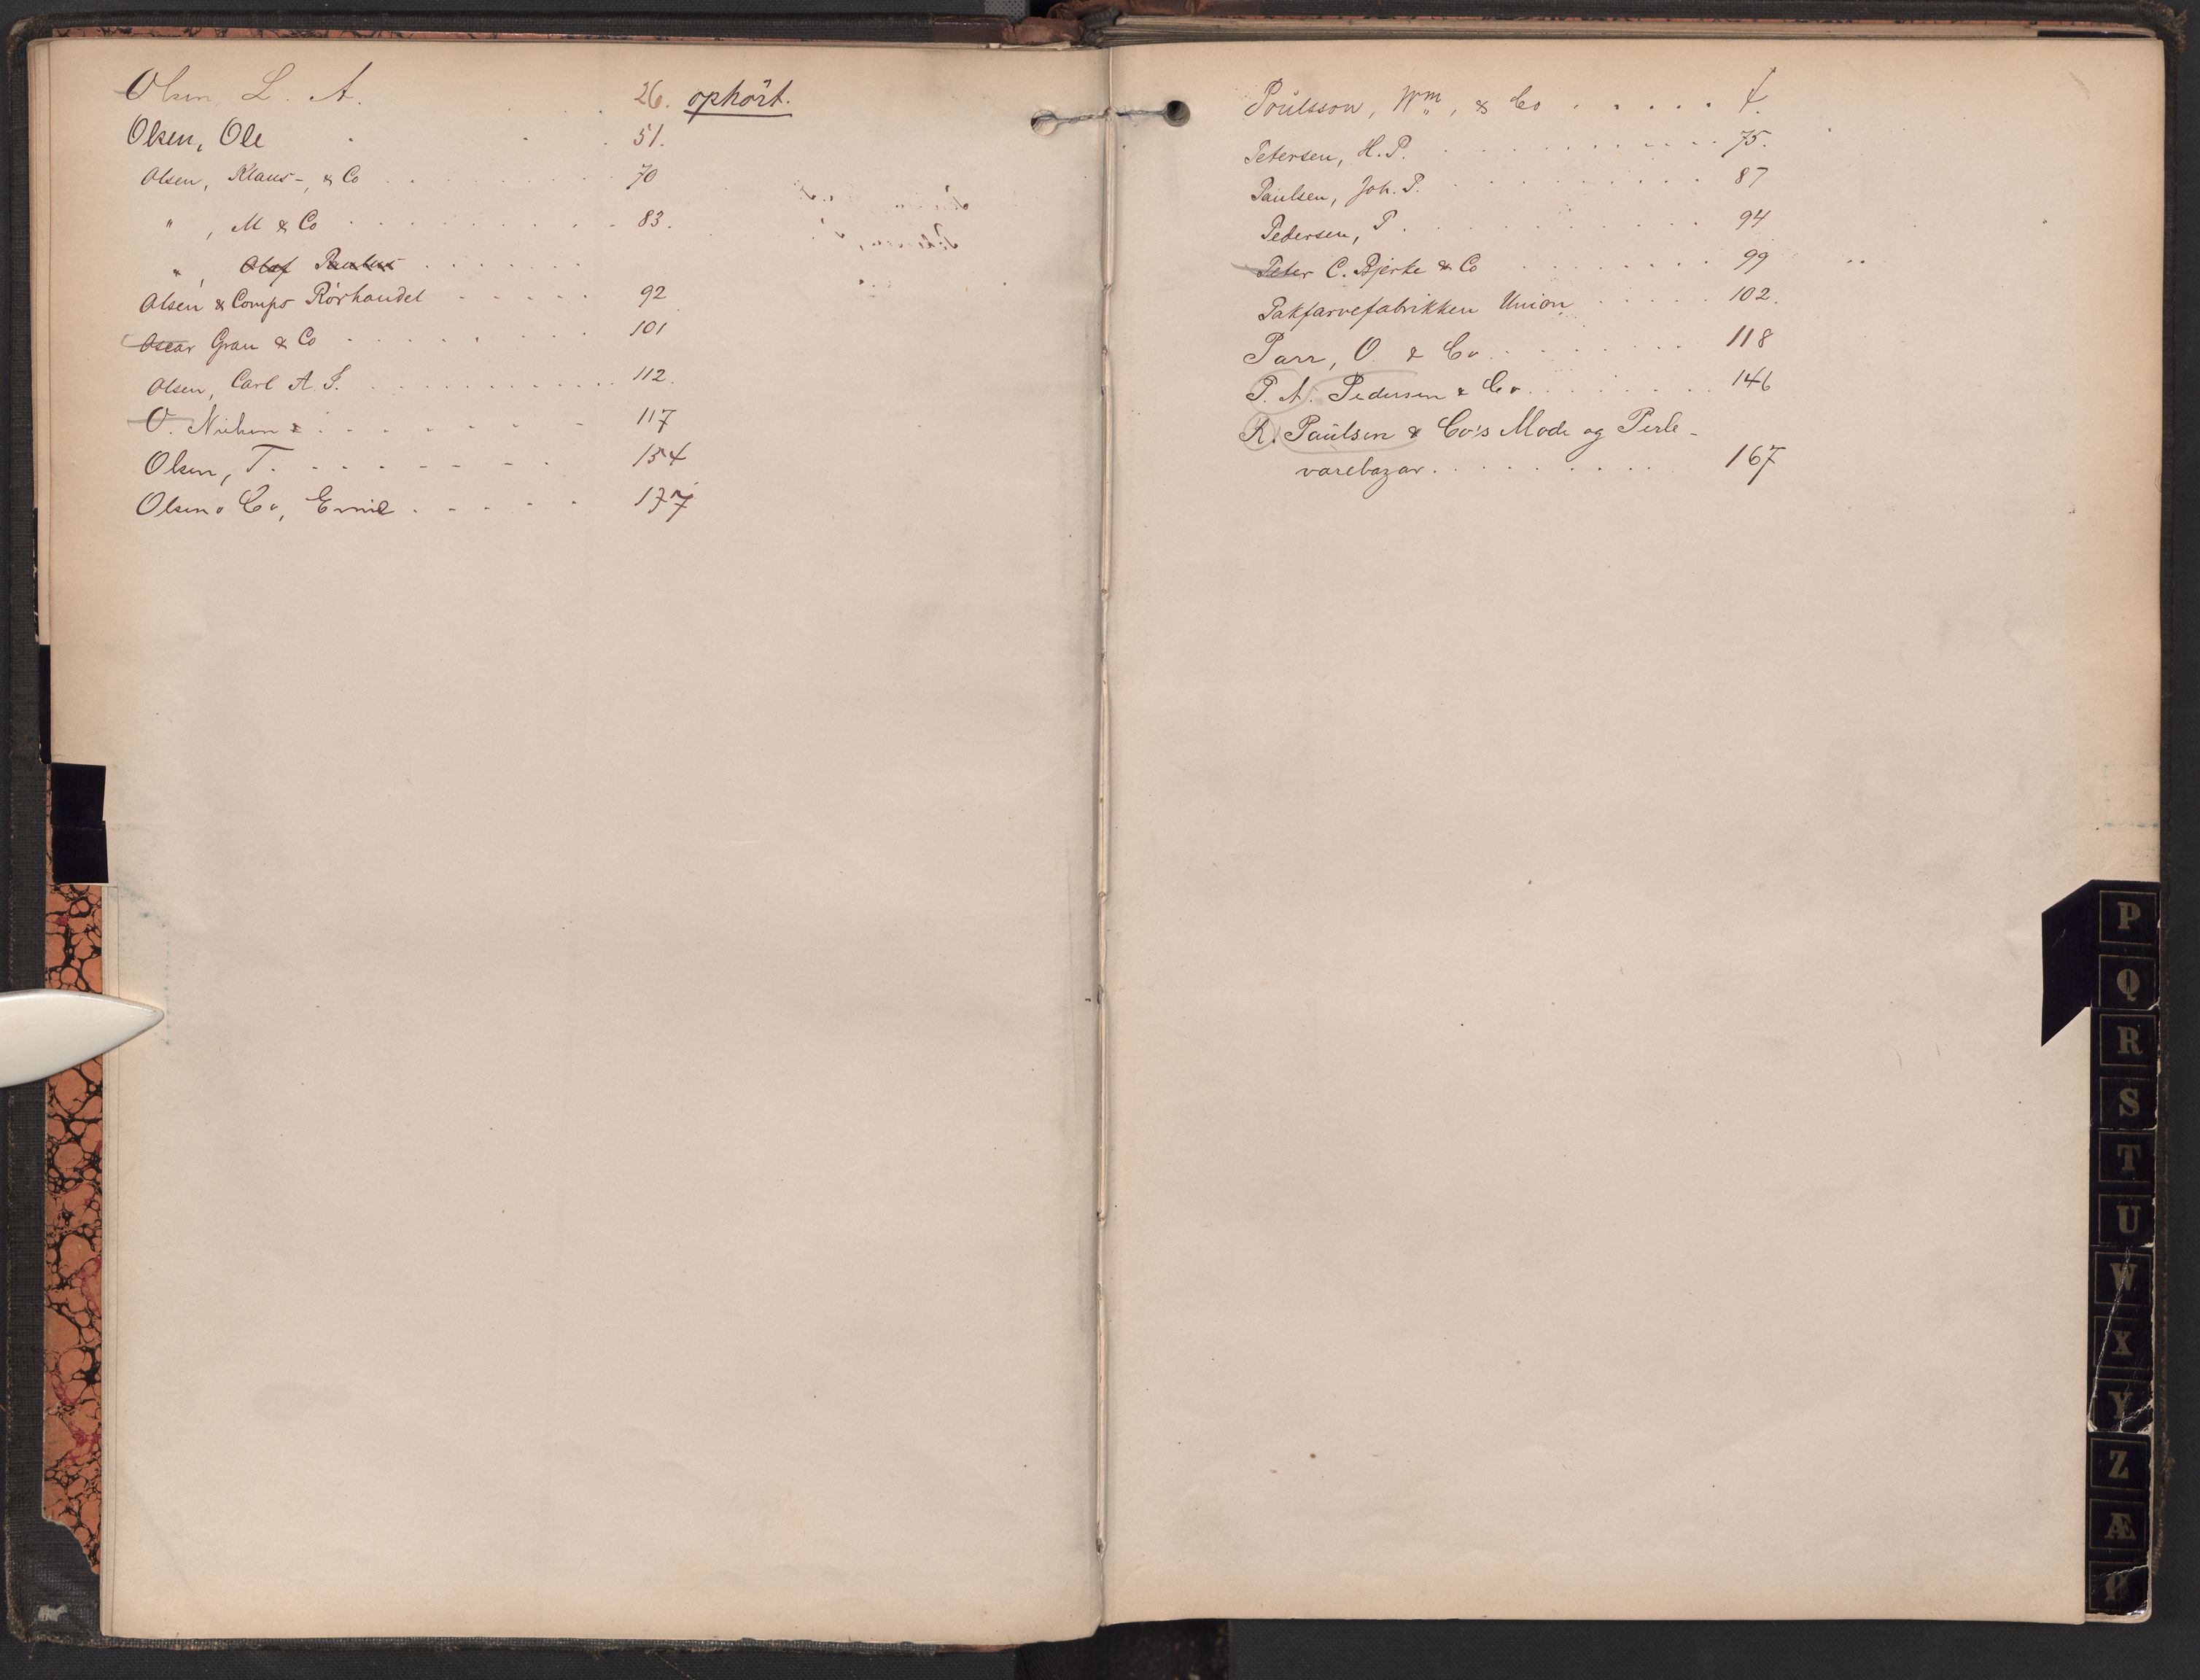 Olsen, L. A. . . 26. ophört.
Olsen, Ole . . . 51.
Olsen, Klaus-, & Co . . . . . . . 70
" , M & Co . . . . . . . . . 83.
" , Olaf Paulus . . . . . .
Olsen & Comps Rörhandel . . . . . 92
Oscar Gran & Co . . . . . . 101
Olsen, Carl A. J. . . . . . . . . . . . 112.
O. Nielsen & . . . . . . . 117
Olsen, T. . . . . . . . 154
Olsen & Co, Emil . . . . . 177
Poülsson, Wm, & Co . . . . . 4.
Petersen, H. P. . . . . . . . . . . . 75.
Paulsen, Joh. P. . . . . . . . . . 87
Pedersen, P. . . . . . . . . . 94
Peter C. Bjerke & Co . . . . . . . 99
Pakfarvefabrikken Union . . . . . 102.
Parr, O. & Co . . . . . . . 118
P. A. Pedersen & Co . . . . . . . 146
R. Paülsen & Co's Mode og Perle-
varebazar . . . . . . . . . . 167
P
Q
R
S
T
U
W
X
Y
Z
Æ
Ø